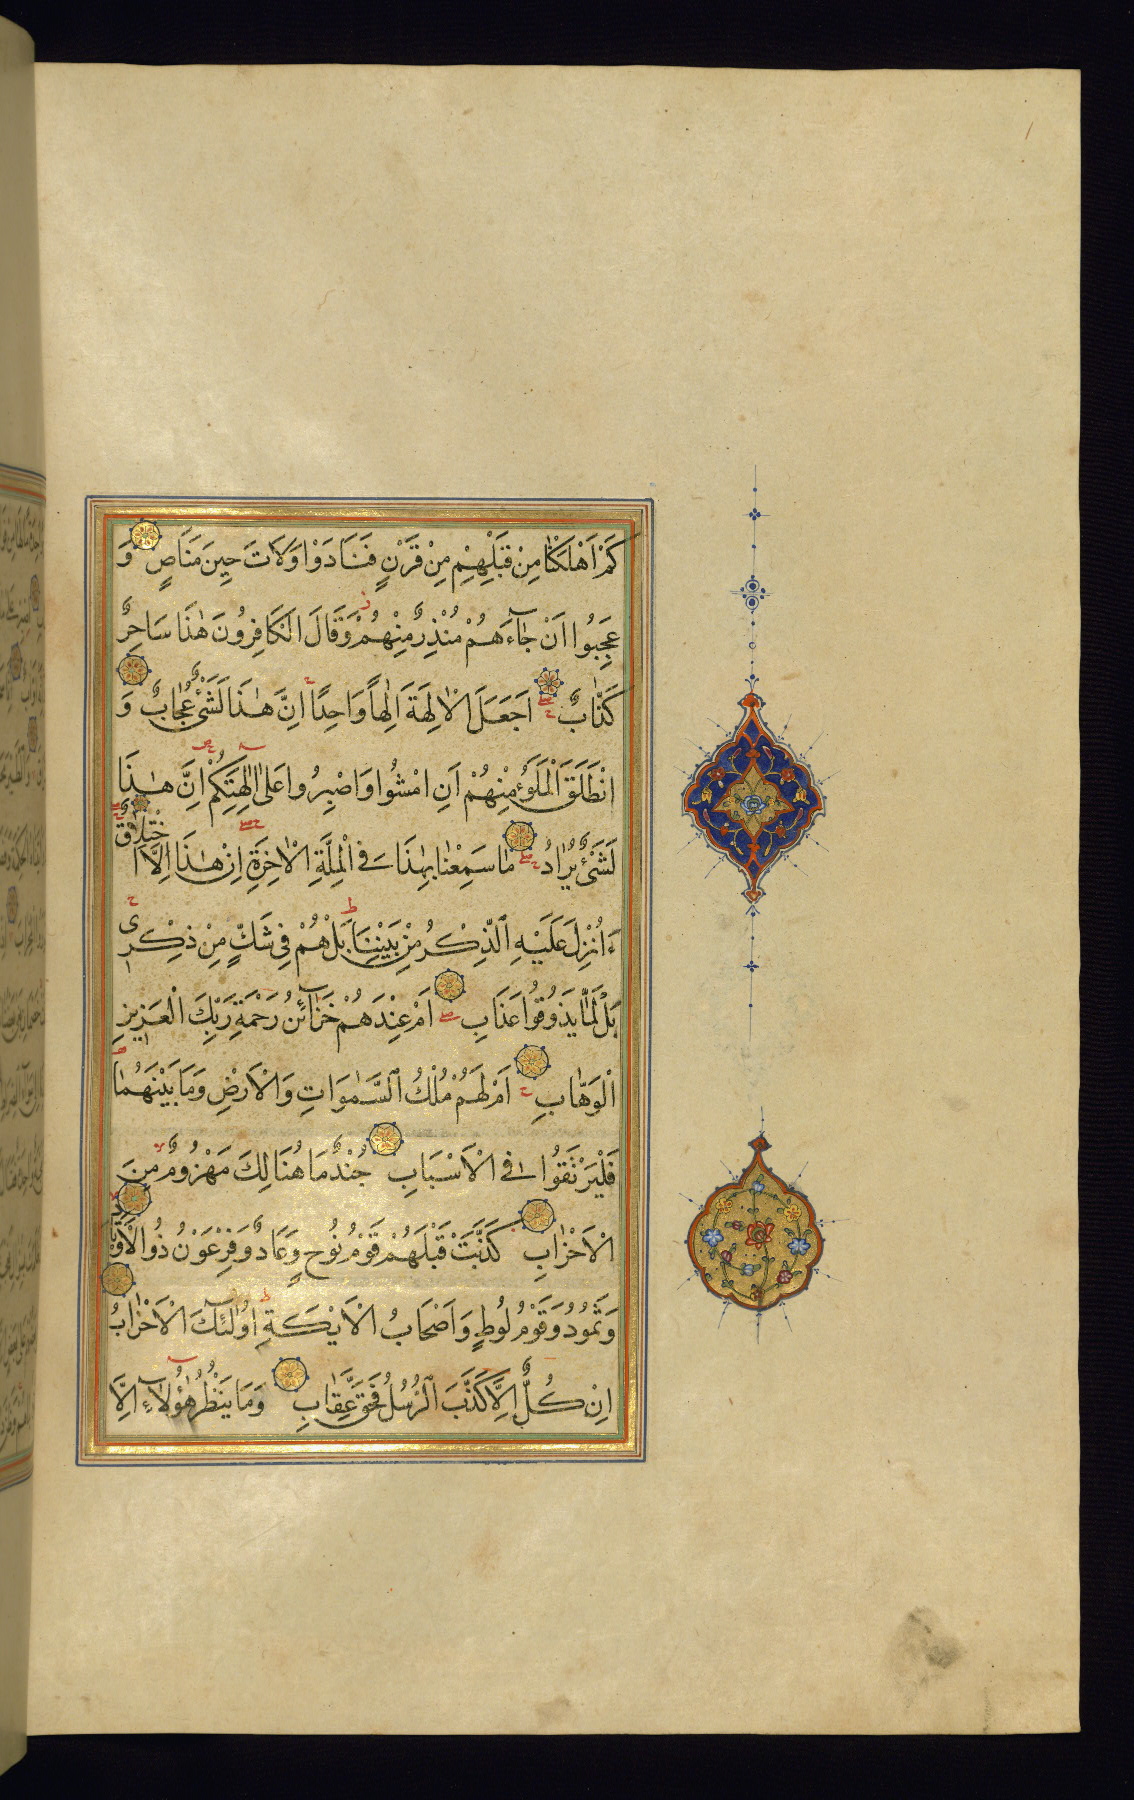 كَمْ اَهْلَكْنَا مِنْ قَبْلِهِمْ مِنْ قَرْنٍ فَنَادَوْا وَلَاتَ حِينَ مَنَاصٍ وَ
عَجِبُوا اَنْ جَاءَهُمْ مُنْذِرٌ مِنْهُمْ وَقَالَ الْكَافِرُونَ هٰذَا سَاحِرٌ
كَذَّابٌ اَجَعَلَ الْاٰلِهَةَ اِلٰهاً وَاحِدًا اِنَّ هٰذَا لَشَىْءٌ عُجَابٌ وَ
انْطَلَقَ الْمَلَؤُ مِنْهُمْ اَنِ امْشُوا وَاصْبِرُوا عَلٰى اٰلِهَتِكُمْ اِنَّ هٰذَا
لَشَىْءٌ يُرَادُ مَا سَمِعْنَا بِهٰذَا فِى الْمِلَّةِ الْاٰخِرَةِ اِنْ هٰذَا اِلَّا اخْتِلَاقٌ
ءَاُنْزِلَ عَلَيْهِ الذِّكْرُ مِنْ بَيْنِنَا بَلْ هُمْ فِى شَكٍّ مِنْ ذِكْرِى
بَلْ لَمَّا يَذُوقُوا عَذَابِ اَمْ عِنْدَهُمْ خَزَآئِنُ رَحْمَةِ رَبِّكَ الْعَزِيزِ
الْوَهَّابِ اَمْ لَهُمْ مُلْكُ السَّمٰوَاتِ وَالْاَرْضِ وَمَا بَيْنَهُمَا
فَلْيَرْتَقُوا فِى الْاَسْبَابِ جُنْدٌ مَا هُنَالِكَ مَهْزُومٌ مِنَ
الْاَحْزَابِ كَذَّبَتْ قَبْلَهُمْ قَوْمُ نُوحٍ وَعَادٌ وَفِرْعَوْنُ ذُو الْاَوْتَادِ
وَثَمُودُ وَقَوْمُ لُوطٍ وَاَصْحَابُ الْاَيْكَةِ اُولٰٓئِكَ الْاَحْزَابُ
اِنْ كُلٌّ اِلَّا كَذَّبَ الرُّسُلَ فَحَقَّ عِقَابِ وَمَا يَنْظُرُ هٰٓؤُلَاءِ اِلَّا